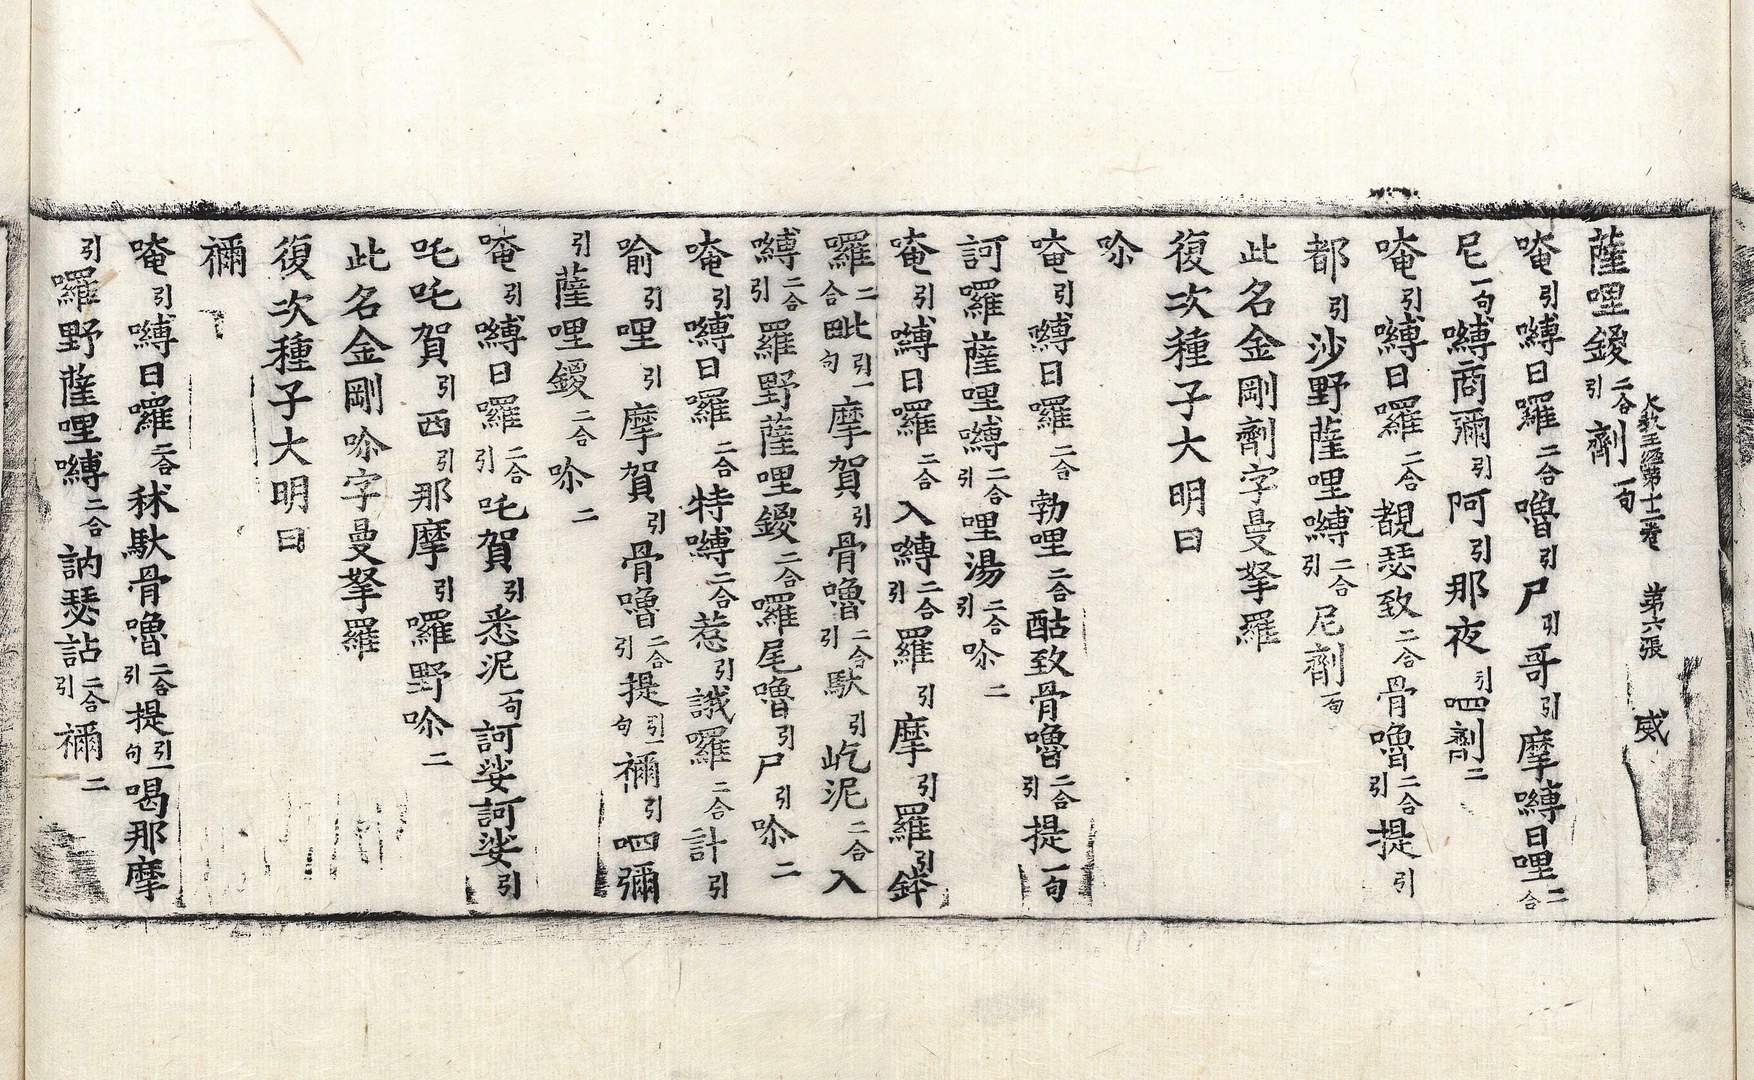 薩哩鑁二合引劑一句
大教王經第十二卷　第六張　感
唵引嚩日囉二合嚕引尸引哥引摩嚩日哩二合
尼一句嚩商彌引阿引那夜引四劑二
唵引嚩日囉二合覩瑟致二合骨嚕二合引提引
都引沙野薩哩嚩二合引尼劑一句
此名金剛劑字曼拏羅
復次種子大明曰
唹
唵引嚩日囉二合勃哩二合酤致骨嚕二合引提一句
訶囉薩哩嚩二合引哩湯二合引唹二
唵引嚩日囉二合入嚩二合引羅引摩引羅引鉢
囉二合毗引一句摩賀引骨嚕二合引馱引屹泥二合入
嚩二合引羅野薩哩鑁二合囉尾嚕引尸引唹二
唵引嚩日囉二合特嚩二合惹引誐囉二合計引
喻引哩引摩賀引骨嚕二合引提引一句禰引呬彌
引薩哩鑁二合唹二
唵引嚩日囉二合引吒賀引悉泥一句訶娑訶娑引
吒吒賀引西引那摩引囉野唹二
此名金剛唹字曼拏羅
復次種子大明曰
禰
唵引嚩日囉二合秫馱骨嚕二合引提引一句喝那摩
引囉野薩哩嚩二合訥瑟詀二合引禰二